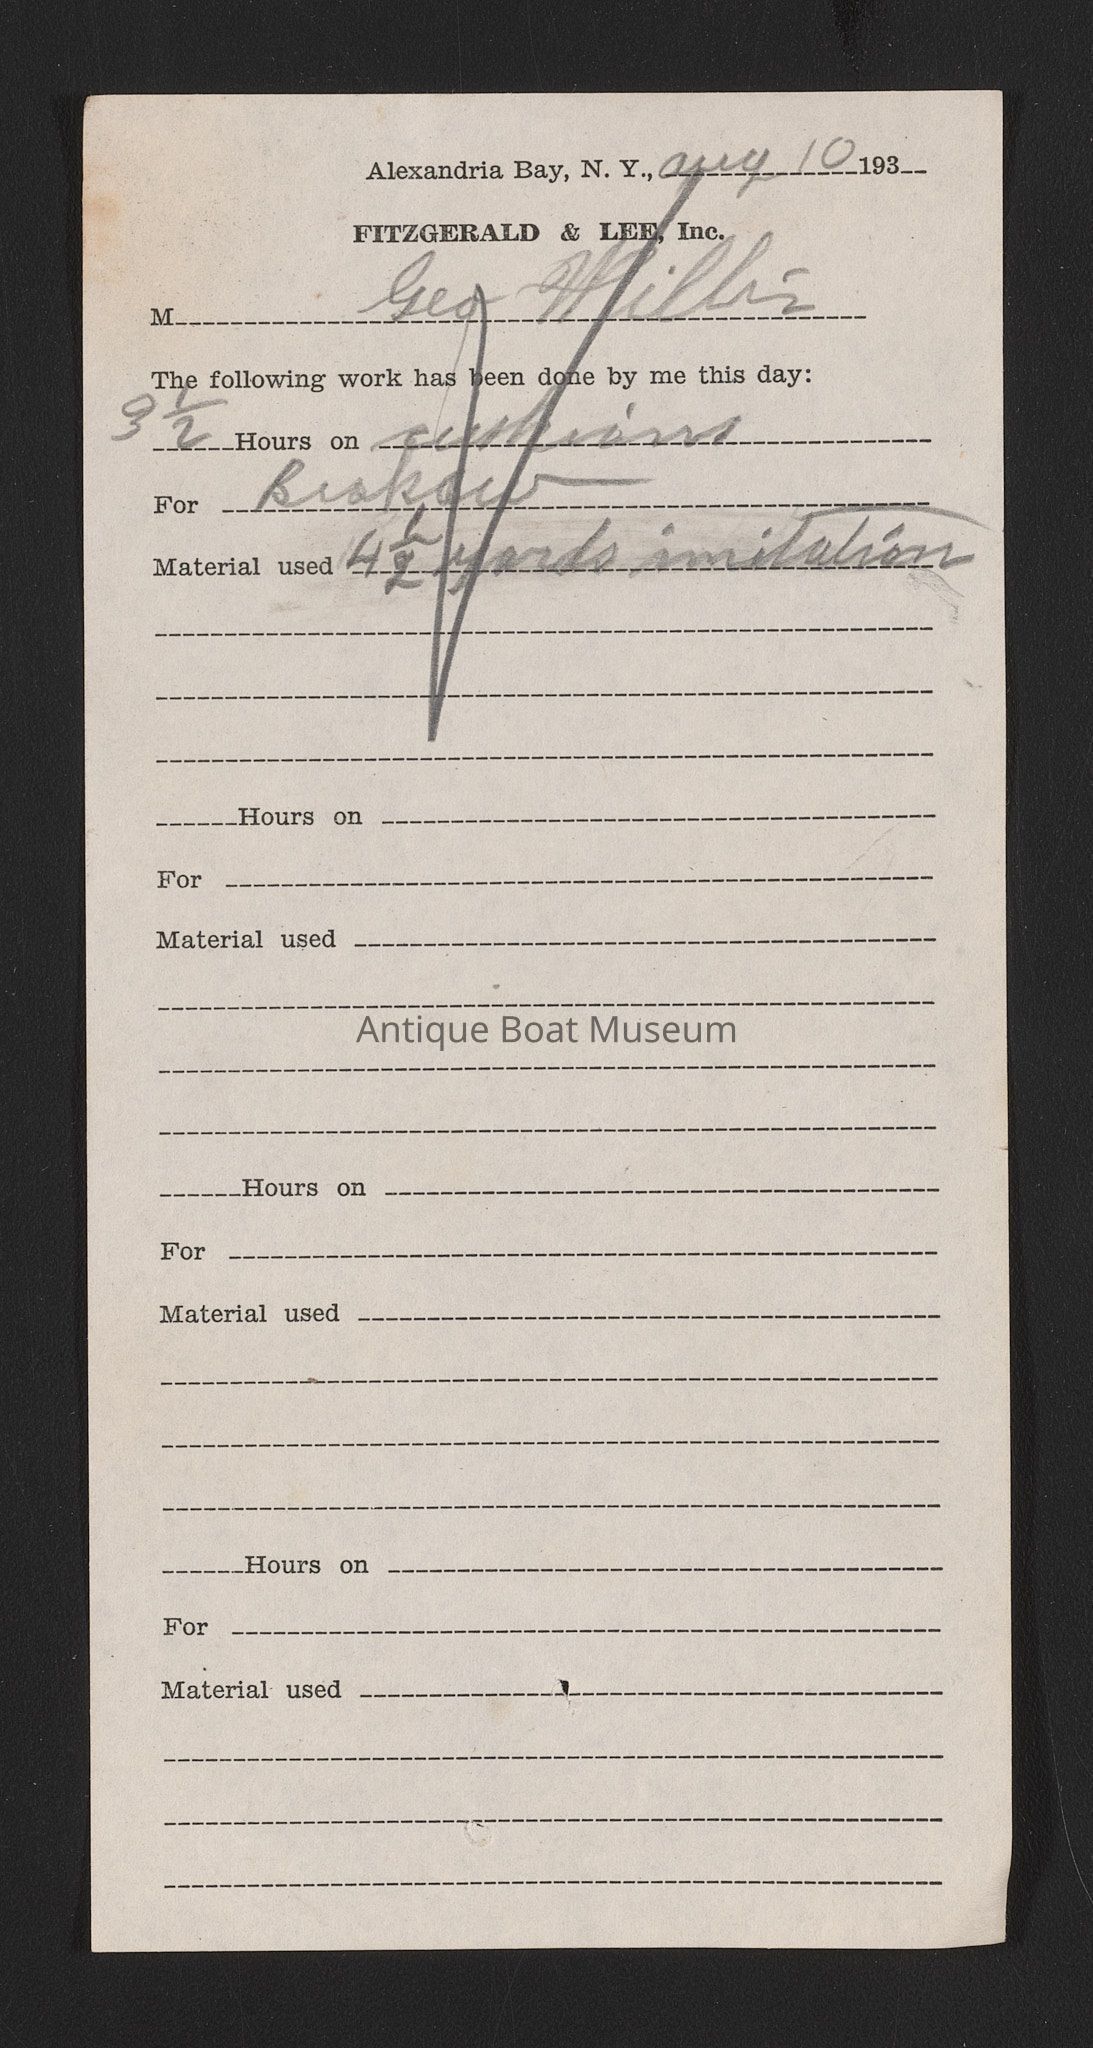 Alexandria Bay, N. Y., Aug 10 193
FITZGERALD & LEE, Inc.
M Geo
The following work has been done by me this day:
3 1/2 Hours on cushions
For Brokaw
Material used 4 1/2 yards imitation
Hours on
For
Material used
Antique Boat Museum
Hours on
For
Material used
Hours on
For
Material used